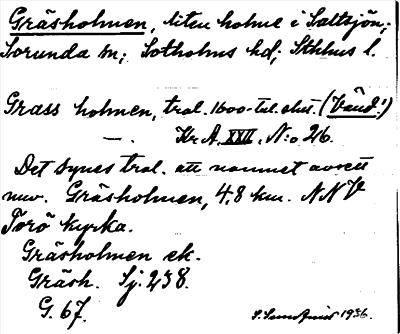 Gräsholmen, liten holme i Saltsjön;
Sorunda sn; Sotholms hd; Sthlms l.
Grass holmen, trol. 1600-tal. slut. (Vänd!)
—. Kr A. XXII. No 26.
Det synes trol. att namnet avsett
nuv. Gräsholmen, 4,8 km. NNV
Torö kyrka.
Gräsholmen ek.
Gräsh. Sj. 238.
G. 67.
1936.